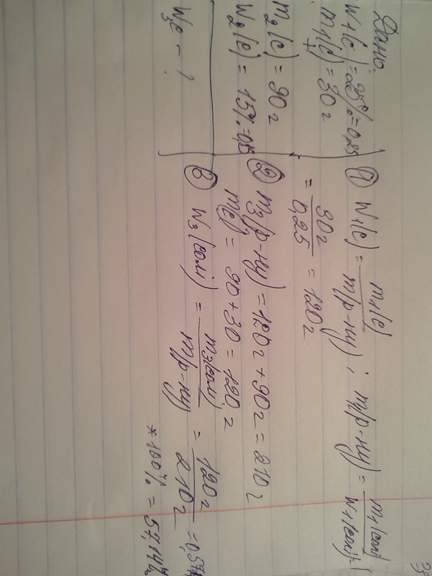 Дано:
W1(с)=25%=0,25
m1(с)=30г
m2(с)=90г
W2(с)=15%=0,15
W3с - ?
① W1(с) = m1(с) / m(р-ну) ; m(р-ну) = m1(соли) / W1(соли)
= 30г / 0,25 = 120г
② m3(р-ну)=120г+90г=210г
m(с)= 90+30=120г
③ W3(соли) = m3(соли) / m(р-ну) = 120г / 210г = 0,57
*100% = 57,14%